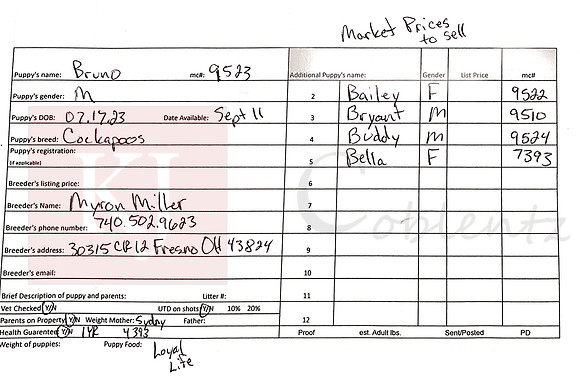 Market Prices
to sell
Puppy's name: Bruno mc#: 9523
Additional Puppy's name: Gender List Price mc#
Puppy's gender: M
2 Bailey F 9522
Puppy's DOB: 07.17.23 Date Available: Sept 11
3 Bryant M 9510
Puppy's breed: Cockapoos
4 Buddy M 9524
Puppy's registration:
(if applicable)
5 Bella F 7393
Breeder's listing price:
6
Breeder's Name: Myron Miller
7
Breeder's phone number: 740.502.9623
8
Breeder's address: 30315 CR 12 Fresno OH 43824
9
Breeder's email:
10
Brief Description of puppy and parents: Litter #:
11
Vet Checked Y/N UTD on shots Y/N 10% 20%
Parents on Property Y/N Weight Mother: Sydny Father:
12
Health Guarantee Y/N 1YR 4393
Proof est. Adult lbs. Sent/Posted PD
Weight of puppies: Puppy Food: Loyal
Life
KJ Coblentz